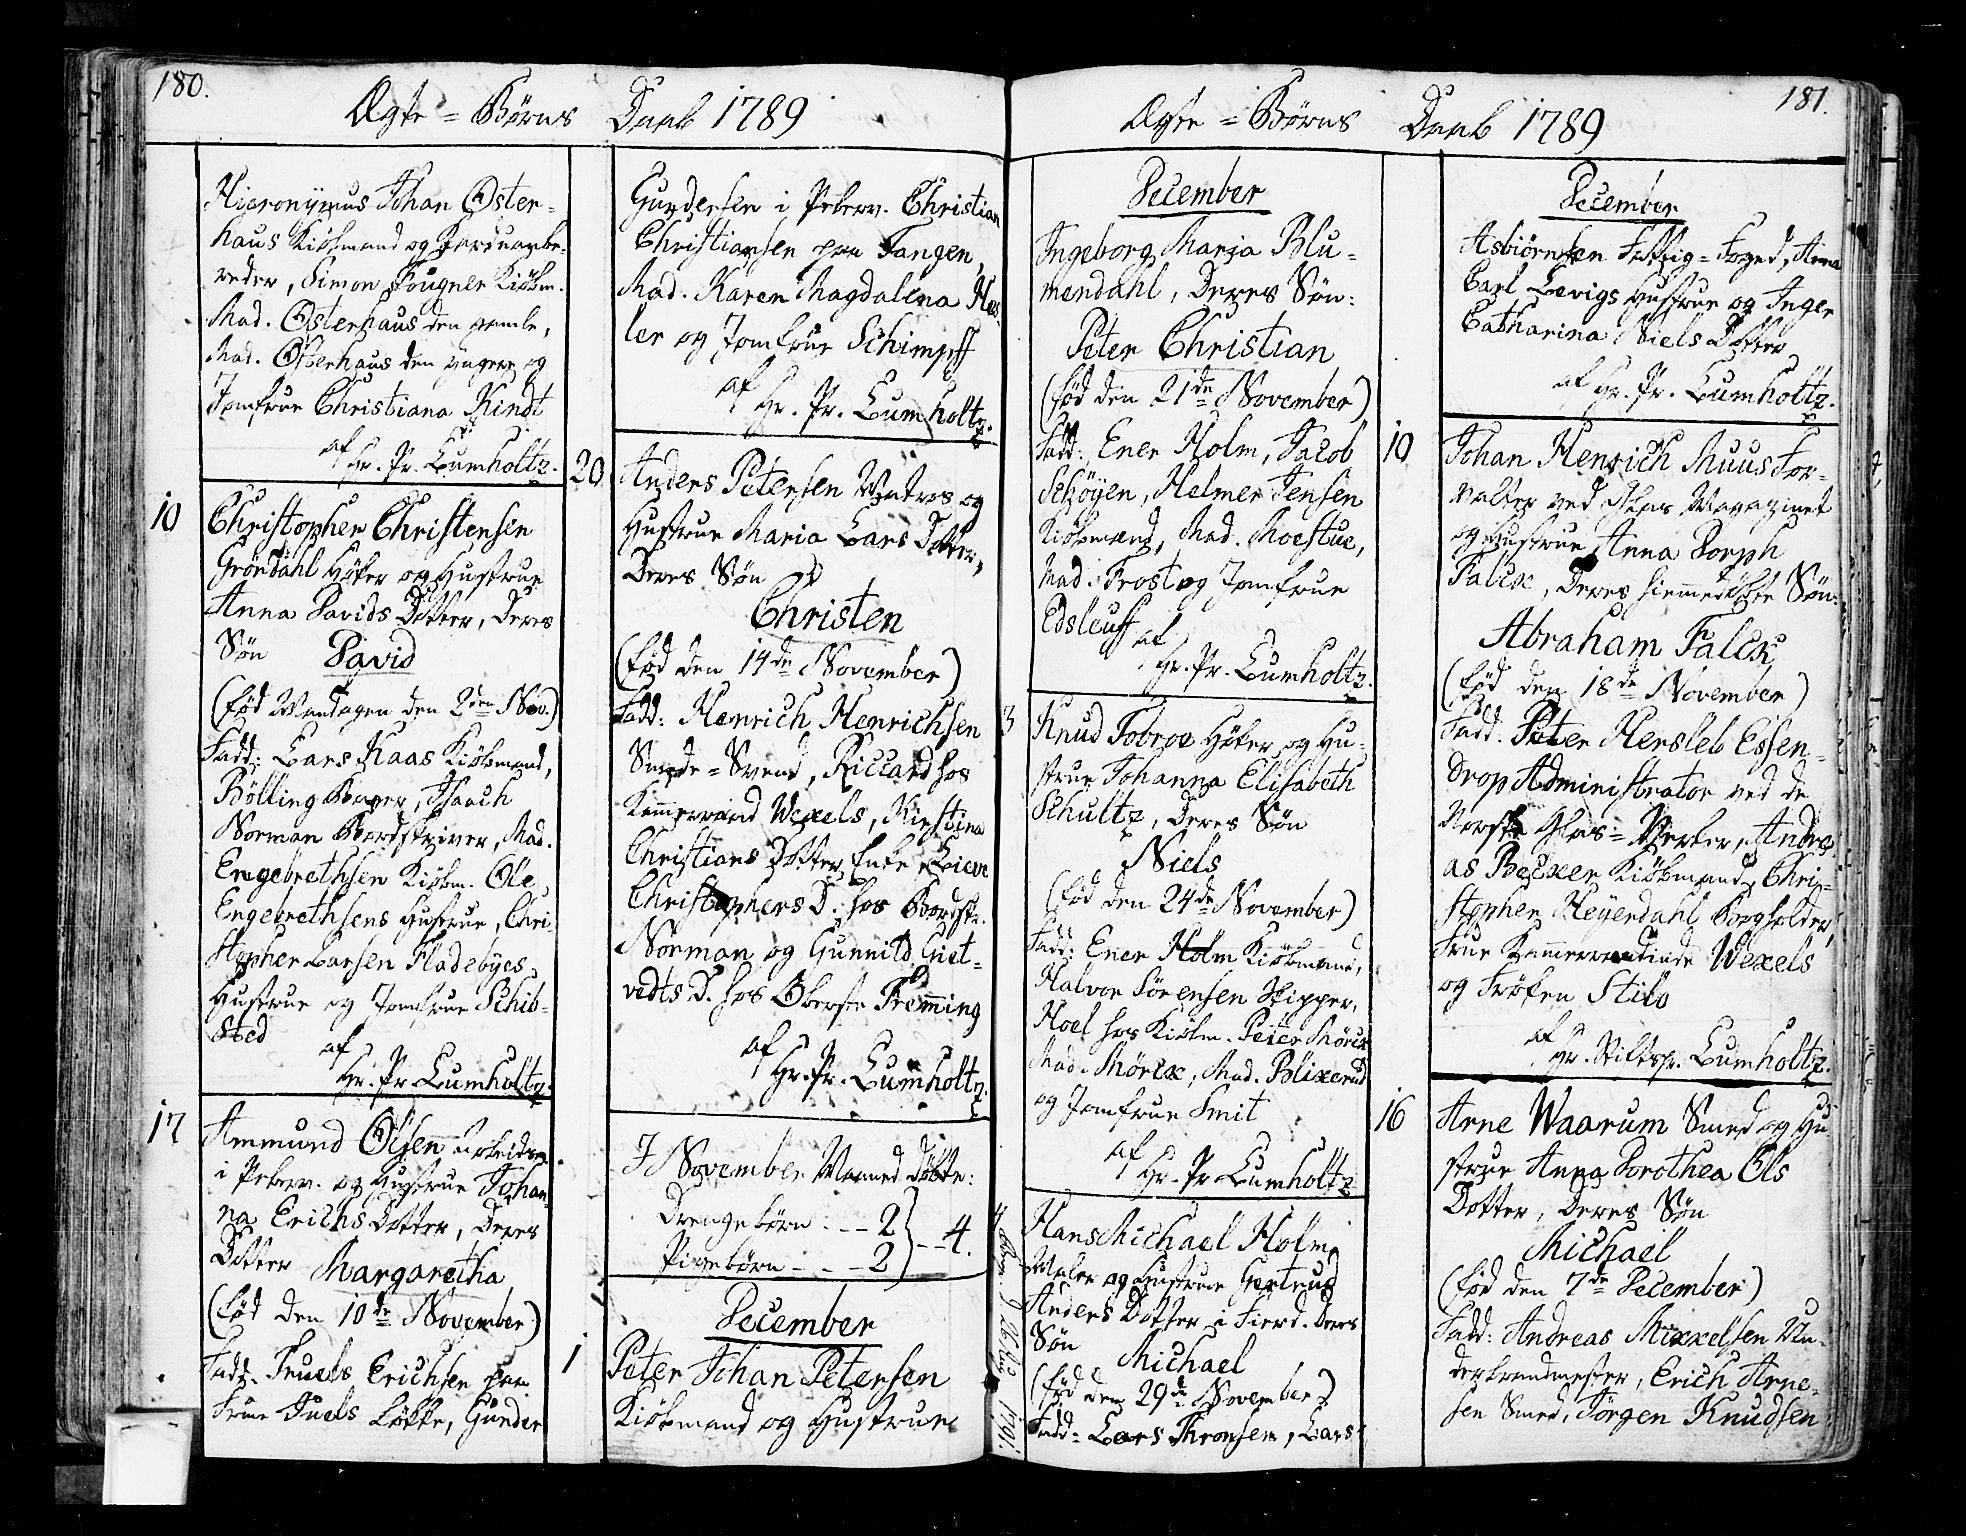 180.
Ægte = Børns Daab 1789
Hieronymus Johan Oster-
haus Kiøbmand og
reder, Simon Fougner Kiøbm.
Mad. Osterhaus den gamle,
Mad. Osterhaus den yngere og
Jomfrue Christiana Kindt
af
Hr. Pr. Lumholtz.
10
Christopher Christensen
Gröndahl Höker og Hustrue
Anna Davids Dotter, Deres
Søn David
(fød Mandagen den 2den Nov.)
Fadd: Lars Kaas Kiøbmand,
Bölling Bager, Isaach
Norman Bordskriver, Mad.
Engebrethsen Kiøbm. Ole
Engebrethsens Hustrue, Chri
stopher Larsen Fladebyes
Hustrue og Jomfrue Schib-
sted
af
Hr. Pr. Lumholtz.
17
Ammund Olsen Arbeidsm
i Peterv. og Hustrue Johan
na Erichs Dotter, Deres
Dotter Margaretha
(fød den 10de November)
Fadd. Truels Erichsen paa
Frue Juels Løkke, Gunder
Gundersen i Peterv. Christian
Christiansen paa Tangen,
Mad. Karen Magdalena
ler og Jomfrue Schimpff
af
Hr. Pr. Lumholtz.
20
Anders Petersen Matros og
Hustrue Maria Lars Dotter,
Deres Søn
Christen
(fød den 14de November)
Fadd: Henrich Henrichsen
Smede = Svend, Riccard hos
Kammerraad Wexels, Kirstina
Christians Dotter Enke
Christophers D. hos Bordskr.
Norman og Gunnild Giet-
vedts D. hos Oberste Fremming
af
Hr. Pr. Lumholtz.
I November Maaned døbte:
Drengebørn - - 2
Pigebørn - - - 2 } - - 4.
December
1
Peter Johan Petersen
Kiøbmand og Hustrue
181.
Ægte = Børns Daab 1789
December
Ingeborg Maria Blu-
mendahl, Deres Søn:
Peter Christian
(fød den 21de November)
Fadd: Ener Holm, Jacob
Schöyen, Helmer Jensen
Kiøbmænd, Mad. Moestue,
Mad. Frost og Jomfrue
Edsleuff
af
Hr. Pr. Lumholtz.
3
Knud Fobroe Höker og Hu-
strue Johanna Elisabeth
Schultz, Deres Søn
Niels
(fød den 24de November)
Fadd: Ener Holm Kiøbmand,
Halvor Sörensen Skipper,
Hoel hos Kiøbm. Peter Mörck
Mad. Mörck, Mad. Blixerud
og Jomfrue Smit
af
Hr. Pr. Lumholtz
Hans Michael Holm
Maler og Hustrue Gertrud
Anders Dotter i Fierd. Deres
Søn Michael
(fød den 29de November)
Fadd: Lars Thronsen, Lars
December
Asbiörnsen Fattig = Foged, Anna
Carl Levigs Hustrue og Inger
Catharina Niels Dotter
af Hr. Pr. Lumholtz.
10
Johan Henrich Muus For-
valter ved Glas Magazinet
og Hustrue Anna Dorph
Falck, Deres hiemmedøbte Søn:
Abraham Falck
(fød den 18de November)
Fadd. Peter Hersleb Essen-
drop Administrator ved de
Norske Glas = Verker, Andre
as Becker Kiøbmand, Chri-
stopher Heyerdahl Bogholder,
Frue Kammerraadinde Wexels
og Frøken Stibo
af
Hr. Stiftspr. Lumholtz.
16
Arne Waarum Smed og Hu
strue Anna Dorothea Ols
Dotter, Deres Søn
Michael
(fød den 7de December)
Fadd: Andreas Mikkelsen Un-
derbrandmester, Erich Arne-
sen Smed, Jörgen Knudsen